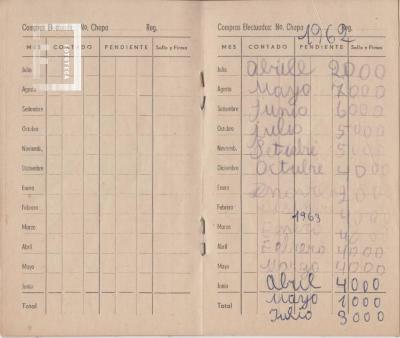 Compras Efectuadas: No. Chapa Reg.
MES CONTADO PENDIENTE Sello y Firma
Julio
Agosto
Setiembre
Octubre
Noviemb.
Diciembre
Enero
Febrero
Marzo
Abril
Mayo
Junio
Total
FOTOTECA
1962
Compras Efectuadas: No. Chapa Reg.
MES CONTADO PENDIENTE Sello y Firma
Julio Abrill 2000
Agosto Mayo 7000
Setiembre Junio 6000
Octubre Julio 5000
Noviemb. Setubre 5000
Diciembre Octubre 4000
Enero
Febrero
1963
Marzo
Abril Febrero 4000
Mayo Marzo 4000
Junio Abril 4000
Total Mayo 1000
Julio 3000